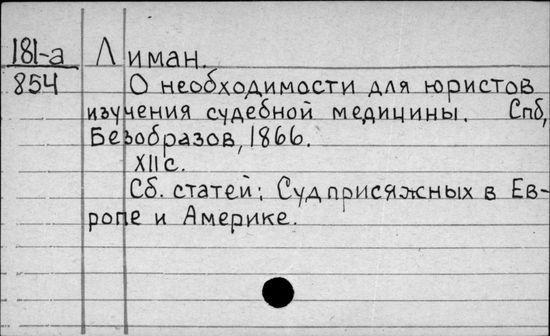 181-а Лиман.
854 О необходимости для юристов
изучения судебной медицины. Спб,
Безобразов, 1866.
XII с.
Сб. статей: Суд присяжных в Ев-
ропе и Америке.